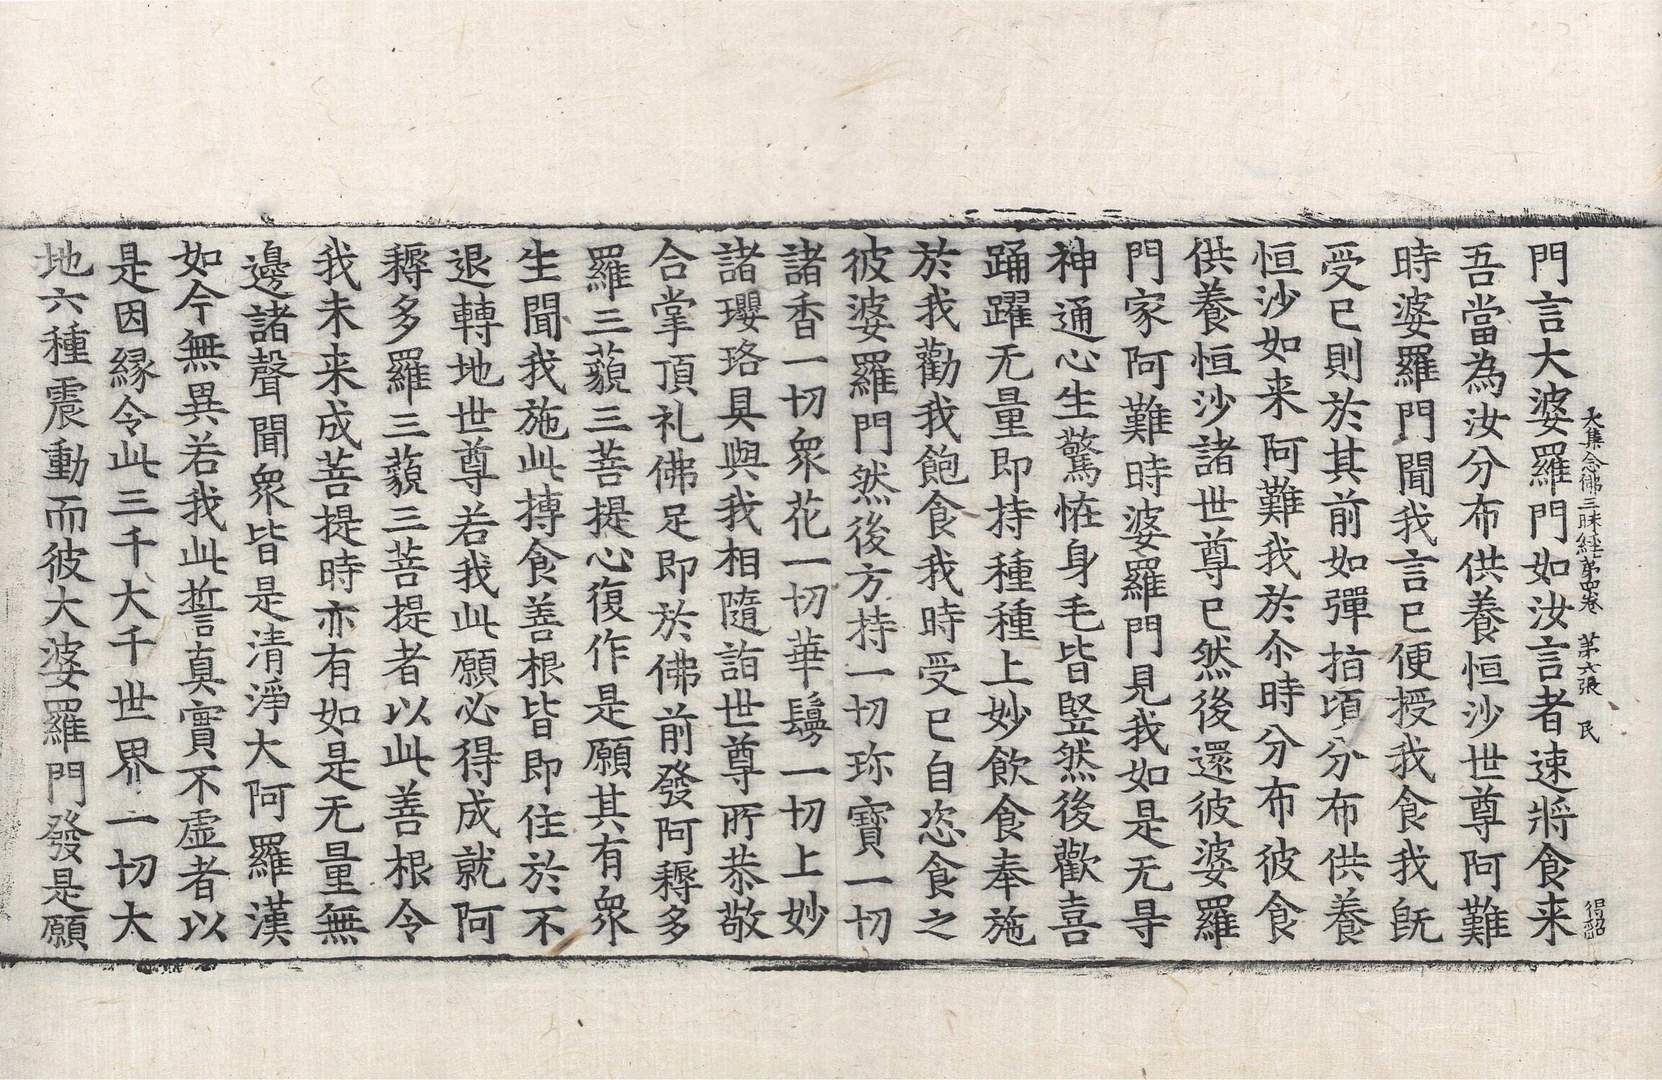 大集念佛三昧経第四卷　第六張　民
門言大婆羅門如汝言者速將食来
吾當為汝分布供養恒沙世尊阿難
時婆羅門聞我言已便授我食我旣
受已則於其前如彈指頃分布供養
恒沙如来阿難我於尒時分布彼食
供養恒沙諸世尊已然後還彼婆羅
門家阿難時婆羅門見我如是无㝵
神通心生驚恠身毛皆竪然後歡喜
踊躍无量即持種種上妙飮食奉施
於我勸我飽食我時受已自恣食之
彼婆羅門然後方持一切珎寶一切
諸香一切衆花一切華鬘一切上妙
諸瓔珞具與我相隨詣世尊所恭敬
合掌頂礼佛足即於佛前發阿耨多
羅三藐三菩提心復作是願其有衆
生聞我施此摶食善根皆即住於不
退轉地世尊若我此願必得成就阿
耨多羅三藐三菩提者以此善根令
我未来成菩提時亦有如是无量無
邊諸聲聞衆皆是清淨大阿羅漢
如今無異若我此誓真實不虛者以
是因縁令此三千大千世界一切大
地六種震動而彼大婆羅門發是願